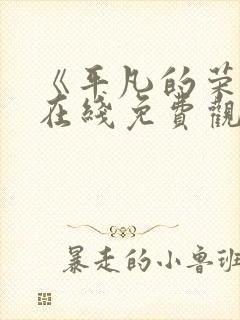 《平凡的荣
在綫免費觀
暴走的小鲁班